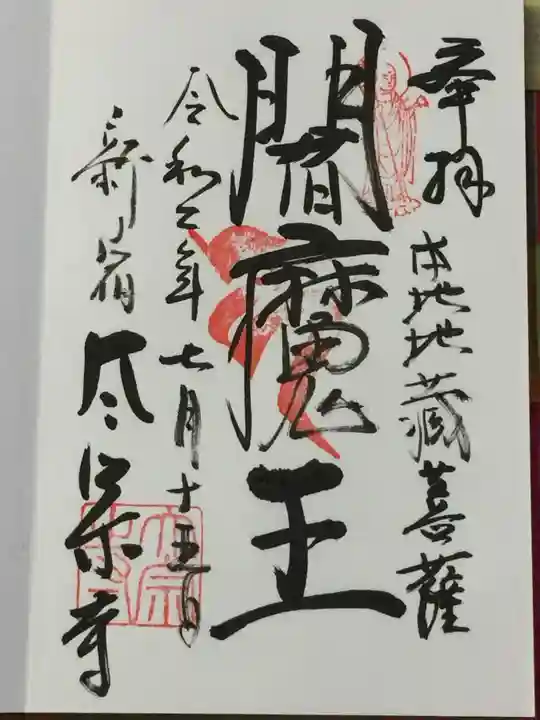 奉拝
本地地蔵菩薩
閻魔王
令和二年七月十五日
新宿
太宗寺